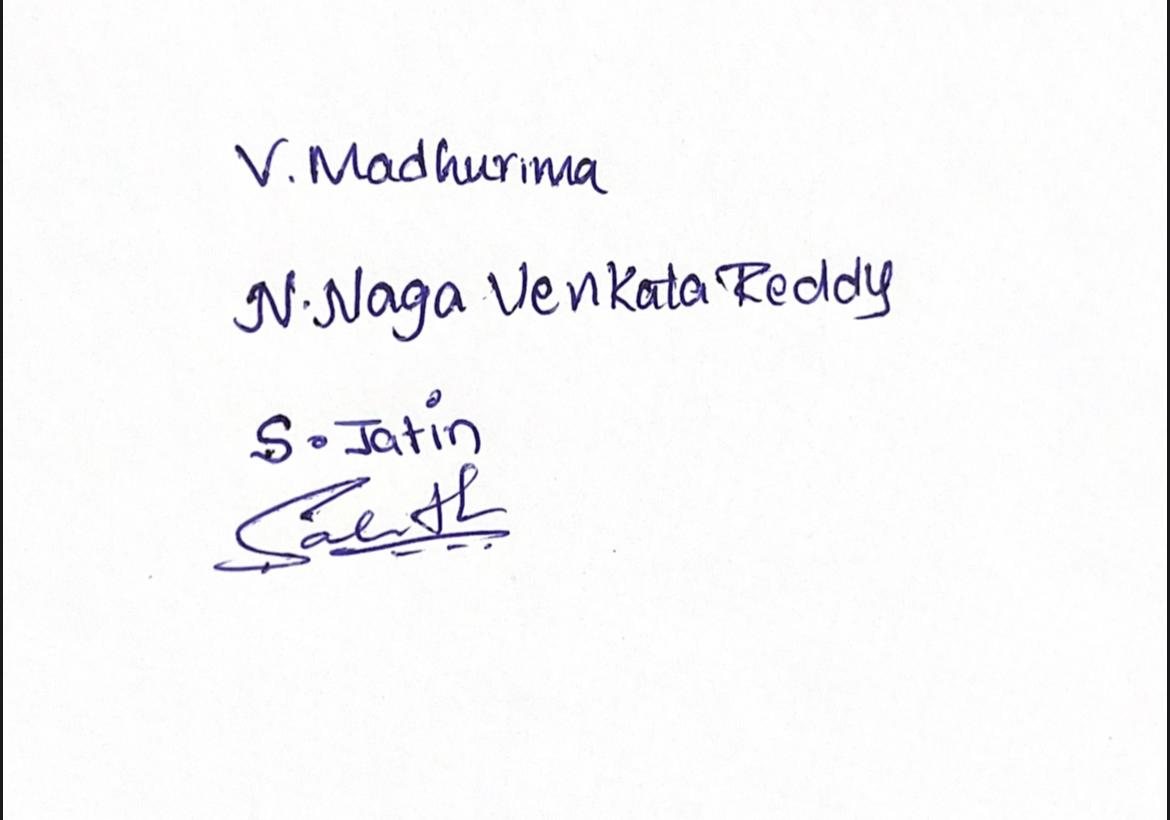 V. Madhurima
N. Naga Venkata Reddy
S. Jatin